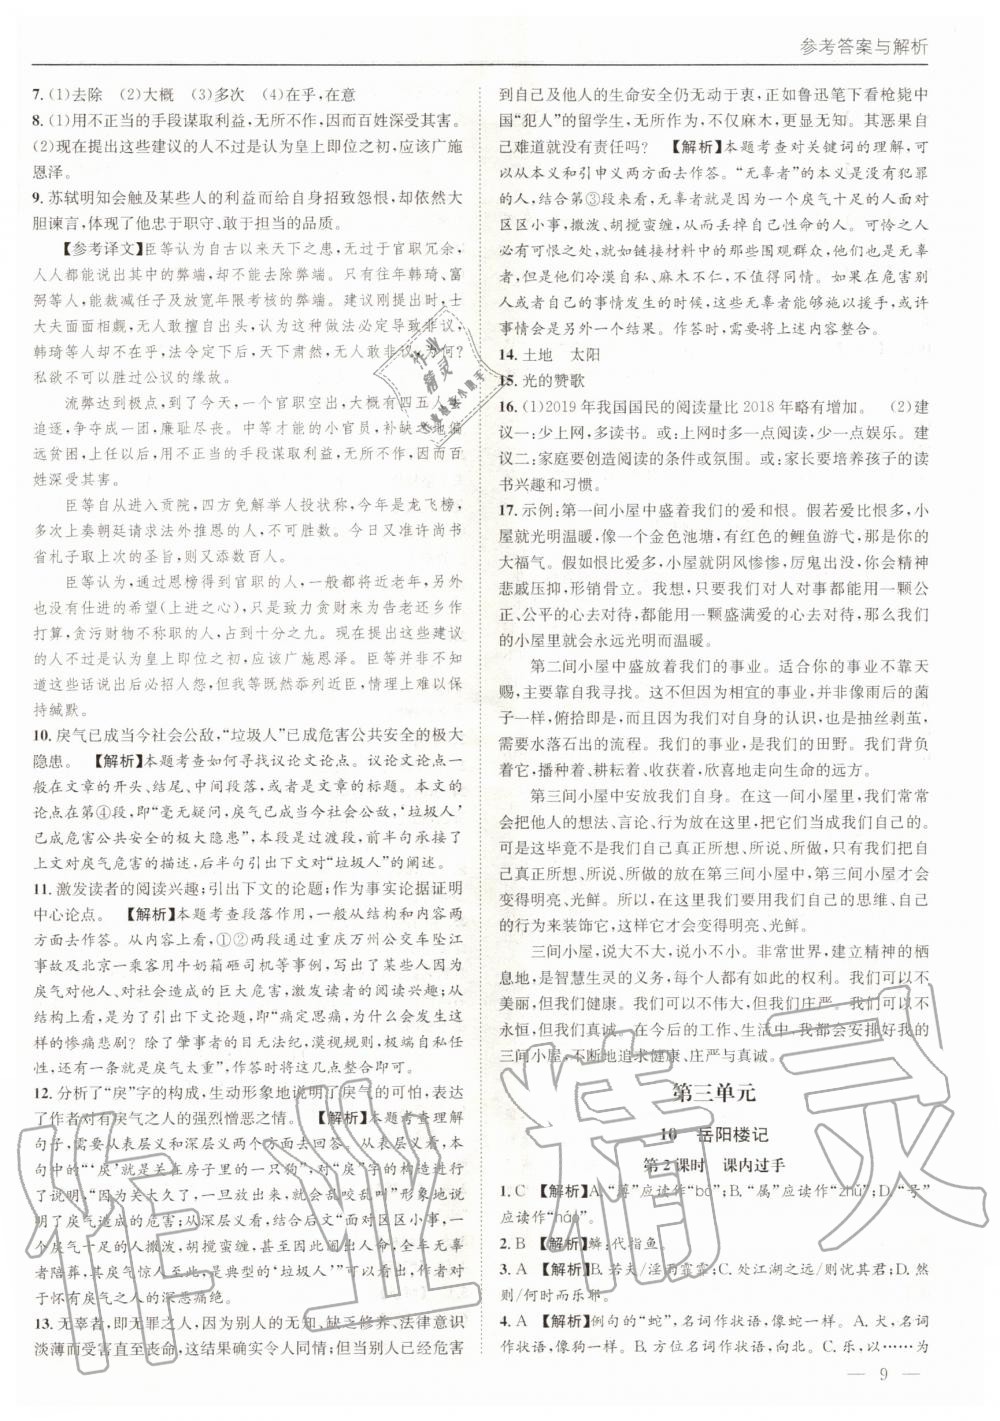 参考答案与解析
7. (1)去除　(2)大概　(3)多次　(4)在乎,在意
8. (1)用不正当的手段谋取利益,无所不作,因而百姓深受其害。
(2)现在提出这些建议的人不过是认为皇上即位之初,应该广施
恩泽。
9. 苏轼明知会触及某些人的利益而给自身招致怨恨,却依然大
胆谏言,体现了他忠于职守、敢于担当的品质。
【参考译文】臣等认为自古以来天下之患,无过于官职冗余,
人人都能说出其中的弊端,却不能去除弊端。只有往年韩琦、富
弼等人,能裁减任子及放宽年限考核的弊端。建议刚提出时,士
大夫面面相觑,无人敢擅自行事,认为这种做法必定导致非议,
韩琦等人果断行动,不曾犹豫,结果,天下肃然,无人敢非议,为何?
私欲不可以胜过公议的缘故。
流弊达到极点,到了今天,一个官职空出,大概有四五人
追逐,争夺成一团,廉耻尽丧。中等才能的小官员,补缺之地偏
远贫困,上任以后,用不正当的手段谋取利益,无所不作,因而百
姓深受其害。
臣等自从进入贡院,四方免解举人投状称,今年是龙飞榜,
多次上奏朝廷请求法外推恩的人,不可胜数。今日又准许尚书
省札子取上次的圣旨,则又添数百人。
臣等认为,通过恩榜得到官职的人都将近老年,另外
也没有仕进的希望(上进之心),只是致力贪财来为告老还乡作
打算,贪污财物不称职的人,占到十分之九。现在提出这些建议
的人不过是认为皇上即位之初,应该广施恩泽。臣等并非不知
道这些话说出后必招人怨,但我等既然忝列近臣,情理上难以保
持缄默。
10. 戾气已成当今社会公敌,“垃圾人”已成危害公共安全的极大
隐患。　【解析】本题考查如何寻找议论文论点。议论文论点一
般在文章的开头、结尾、中间段落,或者是文章的标题。本文的
论点在第④段,即“毫无疑问,戾气已成当今社会公敌,‘垃圾人’
已成危害公共安全的极大隐患”,本段是过渡段,前半句承接了
上文对戾气危害的描述,后半句引出下文对“垃圾人”的阐述。
11. 激发读者的阅读兴趣;引出下文的论题;作为事实论据证明
中心论点。　【解析】本题考查段落作用,一般从结构和内容两
方面去作答。从内容上看,①②两段通过重庆万州公交车坠江
事故及北京一乘客用牛奶箱砸司机等事例,写出了某些人因为
戾气对他人、对社会造成的巨大危害,激发读者的阅读兴趣;从
结构上看,是为了引出下文论题,即“痛定思痛,为什么会发生这
样的惨痛悲剧? 除了肇事者的目无法纪,漠视规则,极端自私任
性,还有一条伤害链条”。作答时将这几点整合即可。
12. 分析了“戾”字的构成,生动形象地说明了戾气的可怕,表达
了作者对有戾气之人的强烈憎恶之情。　【解析】本题考查理解
句子,需要从表层义和深层义两方面去作答。从表层义来说,句
中的“‘戾’就是关在房子里的一只犬”对“戾”字的构造进行分
析,“因为关太久了,一旦放出来,就会乱咬乱叫”形象地说
明了戾气造成的危害;从深层义来说,结合后文“面对区区小事,一
个戾气十足的人撒泼、胡搅蛮缠,甚至闹出人命,令车上无辜
者葬送,其戾气惊人至此,是典型的‘垃圾人’”可以看出,作者对
于怀有戾气之人的深恶痛绝。
13. 无辜者,即无罪之人,因为别人的无知、缺少修养、法律意识
淡薄而受害直至丧命,这结果确实令人同情;但当别人已经危害
到自己及他人的生命安全仍无动于衷,正如鲁迅笔下看枪毙中
国“犯人”的留学生,无所作为,不仅麻木,更加冷漠。其恶果自
己难道就没有责任吗?　【解析】本题考查对关键词的理解,可
以从本义和引申义两方面去作答。“无辜者”的本义是没有犯罪
的人,结合第③段来看,无辜者就是一个戾气十足的人为了
区区小事,撒泼、胡搅蛮缠,并葬送自己性命的人。可怜之人
必有可恨之处,就如链接材料中的那些围观群众,他们是无辜
的,但是他们的冷漠自私、麻木不仁,不值得同情。如果在危害别
人或者自己的事情发生的时候,这些无辜者能施以援手,或许
事情会是另外一个结果。作答时,需要将上述内容整合。
14. 土地　太阳
15. 光的赞歌
16. (1)2019 年我国国民的阅读量比 2018 年略有增加。　(2)建
议一:少上网,多读书。或:上网时多一点阅读,少一点娱乐。 建
议二:家庭要创造阅读的条件或氛围。或:家长要培养孩子的读
书兴趣和习惯。
17. 示例:第一间小屋中盛着我们的爱和恨。假若爱比恨多,小
屋就光明温暖,像一个金色池塘,有红色的鲤鱼游弋,那是你的
大福气。假如恨比爱多,小屋就阴风惨惨,厉鬼出没,你会精神
悲戚压抑,形销骨立。我想,只要我们对人对事都能用一颗公
正、公平的心去对待,都能用一颗盛满爱的心去对待,那么我们
的小屋里就会永远光明而温暖。
第二间小屋中盛放着我们的事业。适合你的事业不靠天
赐,主要靠自我寻找。这是因为相宜的事业,并非像雨后的菌
子一样,俯拾即是,而我们对自身的认识,也是抽丝剥茧,
需要水落石出的流程。我们的事业,是我们的田野。我们背负
着它,播种着、耕耘着、收获着,欣喜地走向生命的远方。
第三间小屋中安放我们自身。在这一间小屋里,我们常常
会把他人的想法、言论、行为放在这里,把它们当成我们自己的。
可是这毕竟不是我们自己真正所想、所说、所做,怎样才能让第
三间小屋变得明亮、光鲜呢?只有我们自己真正所想、所说、所做的才会
变得明亮、光鲜。所以,在这里放置我们自己的思维、自己
的行为来装饰它,这样它才会变得明亮、光鲜。
三间小屋,说大不大,说小不小。非常世界,建立精神的栖
息地,是智慧生灵的义务,每个人都有如此的权利。我们可以不
美丽,但我们健康。我们可以不伟大,但我们庄严。我们可以不
永恒,但我们真诚。在今后的工作、生活中,我都会安排好我的
三间小屋,不断地追求健康、庄严与真诚。
第三单元
10　岳阳楼记
第 2 课时　课内过手
1. C　【解析】A.“薄”应读作“bó”;B.“属”应读作“zhǔ”;D.“号”
应读作“háo”。
2. B　【解析】鳞:代指鱼。
3. A　【解析】B. 若夫/淫雨霏霏;C. 处江湖之远/则忧其君;D. 然
则/何时而乐耶。
4. A　【解析】例句的“蛇”,名词作状语,像蛇一样。A. 犬,名词
作状语,像狗一样。B. 方位名词作状语,向北。C. 乐,以……为
— 9 —
作业精灵